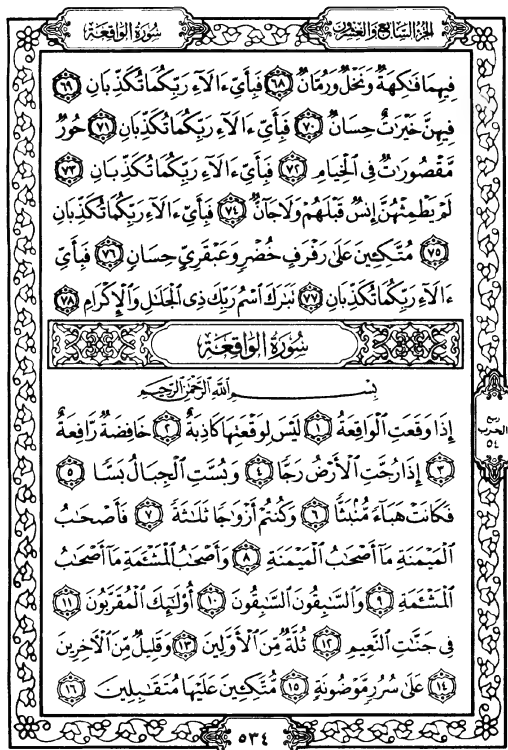 الجزء السابع والعشرون
سورة الواقعة
فِيهِمَا فَٰكِهَةٌ وَنَخْلٌ وَرُمَّانٌ ٦٨ فَبِأَيِّ ءَالَآءِ رَبِّكُمَا تُكَذِّبَانِ ٦٩
فِيهِنَّ خَيْرَٰتٌ حِسَانٌ ٧٠ فَبِأَيِّ ءَالَآءِ رَبِّكُمَا تُكَذِّبَانِ ٧١ حُورٌ
مَّقْصُورَٰتٌ فِى ٱلْخِيَامِ ٧٢ فَبِأَيِّ ءَالَآءِ رَبِّكُمَا تُكَذِّبَانِ ٧٣
لَمْ يَطْمِثْهُنَّ إِنسٌ قَبْلَهُمْ وَلَا جَآنٌّ ٧٤ فَبِأَيِّ ءَالَآءِ رَبِّكُمَا تُكَذِّبَانِ
٧٥ مُتَّكِـِٔينَ عَلَىٰ رَفْرَفٍ خُضْرٍ وَعَبْقَرِىٍّ حِسَانٍ ٧٦ فَبِأَيِّ
ءَالَآءِ رَبِّكُمَا تُكَذِّبَانِ ٧٧ تَبَٰرَكَ ٱسْمُ رَبِّكَ ذِى ٱلْجَلَٰلِ وَٱلْإِكْرَامِ ٧٨
سُورَةُ الوَاقِعَة
بِسْمِ ٱللَّهِ ٱلرَّحْمَٰنِ ٱلرَّحِيمِ
إِذَا وَقَعَتِ ٱلْوَاقِعَةُ ١ لَيْسَ لِوَقْعَتِهَا كَاذِبَةٌ ٢ خَافِضَةٌ رَّافِعَةٌ
٣ إِذَا رُجَّتِ ٱلْأَرْضُ رَجًّا ٤ وَبُسَّتِ ٱلْجِبَالُ بَسًّا ٥
فَكَانَتْ هَبَآءً مُّنۢبَثًّا ٦ وَكُنتُمْ أَزْوَٰجًا ثَلَٰثَةً ٧ فَأَصْحَٰبُ
ٱلْمَيْمَنَةِ مَآ أَصْحَٰبُ ٱلْمَيْمَنَةِ ٨ وَأَصْحَٰبُ ٱلْمَشْـَٔمَةِ مَآ أَصْحَٰبُ
ٱلْمَشْـَٔمَةِ ٩ وَٱلسَّٰبِقُونَ ٱلسَّٰبِقُونَ ١٠ أُو۟لَٰٓئِكَ ٱلْمُقَرَّبُونَ ١١
فِى جَنَّٰتِ ٱلنَّعِيمِ ١٢ ثُلَّةٌ مِّنَ ٱلْأَوَّلِينَ ١٣ وَقَلِيلٌ مِّنَ ٱلْءَاخِرِينَ
١٤ عَلَىٰ سُرُرٍ مَّوْضُونَةٍ ١٥ مُّتَّكِـِٔينَ عَلَيْهَا مُتَقَٰبِلِينَ ١٦
ربع
الحزب
٥٤
٥٣٤